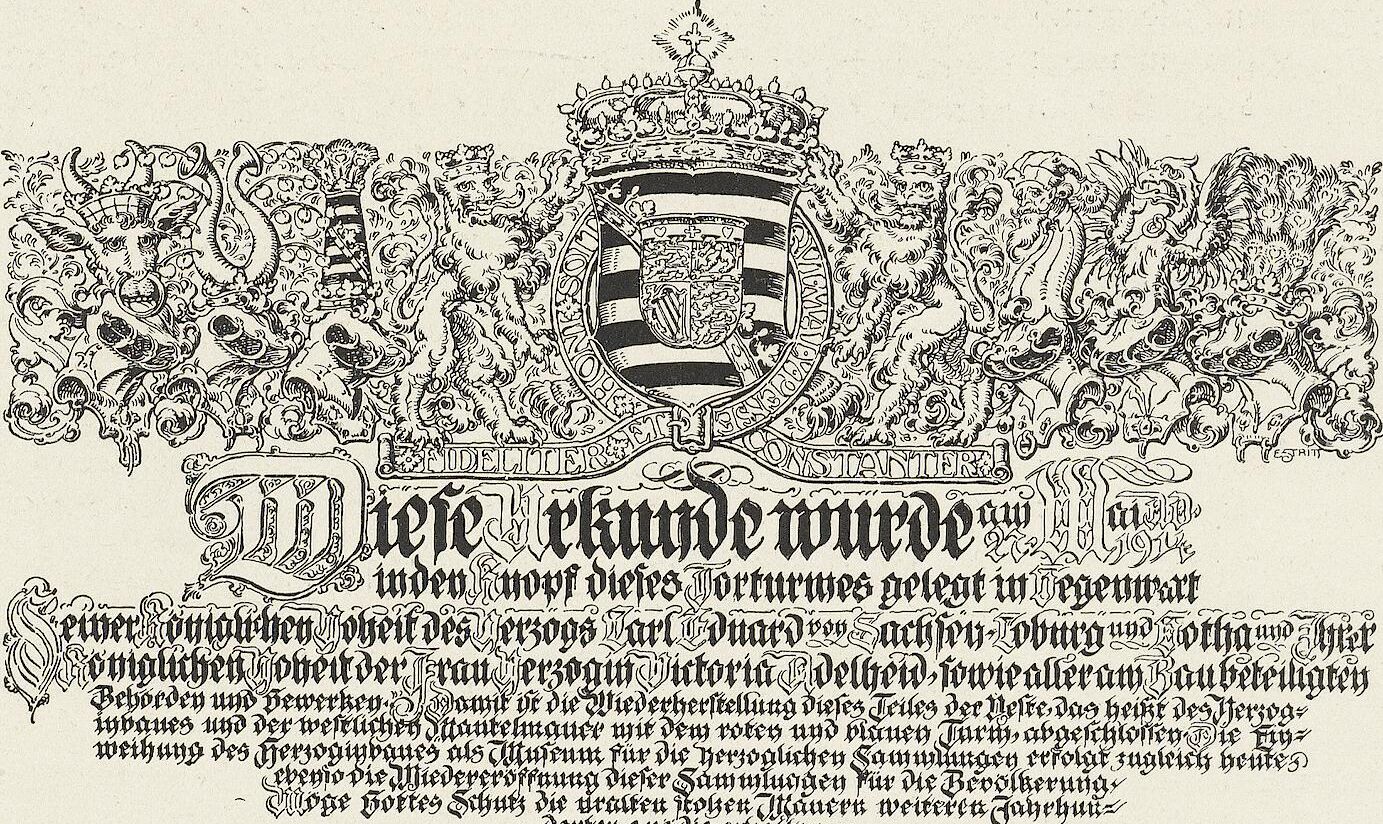 HONI · SOIT · QUI · MAL · Y · PENSE
FIDELITER ET CONSTANTER
E. STRITT
Diese Urkunde wurde am 22. Mai 1914
in den Knopf dieses Torturmes gelegt in Gegenwart
Seiner Königlichen Hoheit des Herzogs Carl Eduard von Sachsen-Coburg und Gotha und Ihrer
Königlichen Hoheit der Frau Herzogin Victoria Adelheid, sowie aller am Bau beteiligten
Behörden und Gewerken. Damit ist die Wiederherstellung dieses Teiles der Veste, das heißt des Herzog=
inbaues und der westlichen Mantelmauer mit dem roten und blauen Turm, abgeschlossen. Die Ein=
weihung des Herzoginbaues als Museum für die herzoglichen Sammlungen erfolgt zugleich heute,
ebenso die Wiedereröffnung dieser Sammlungen für die Bevölkerung.
Möge Gottes Schutz die uralten stolzen Mauern weiteren Jahrhun=